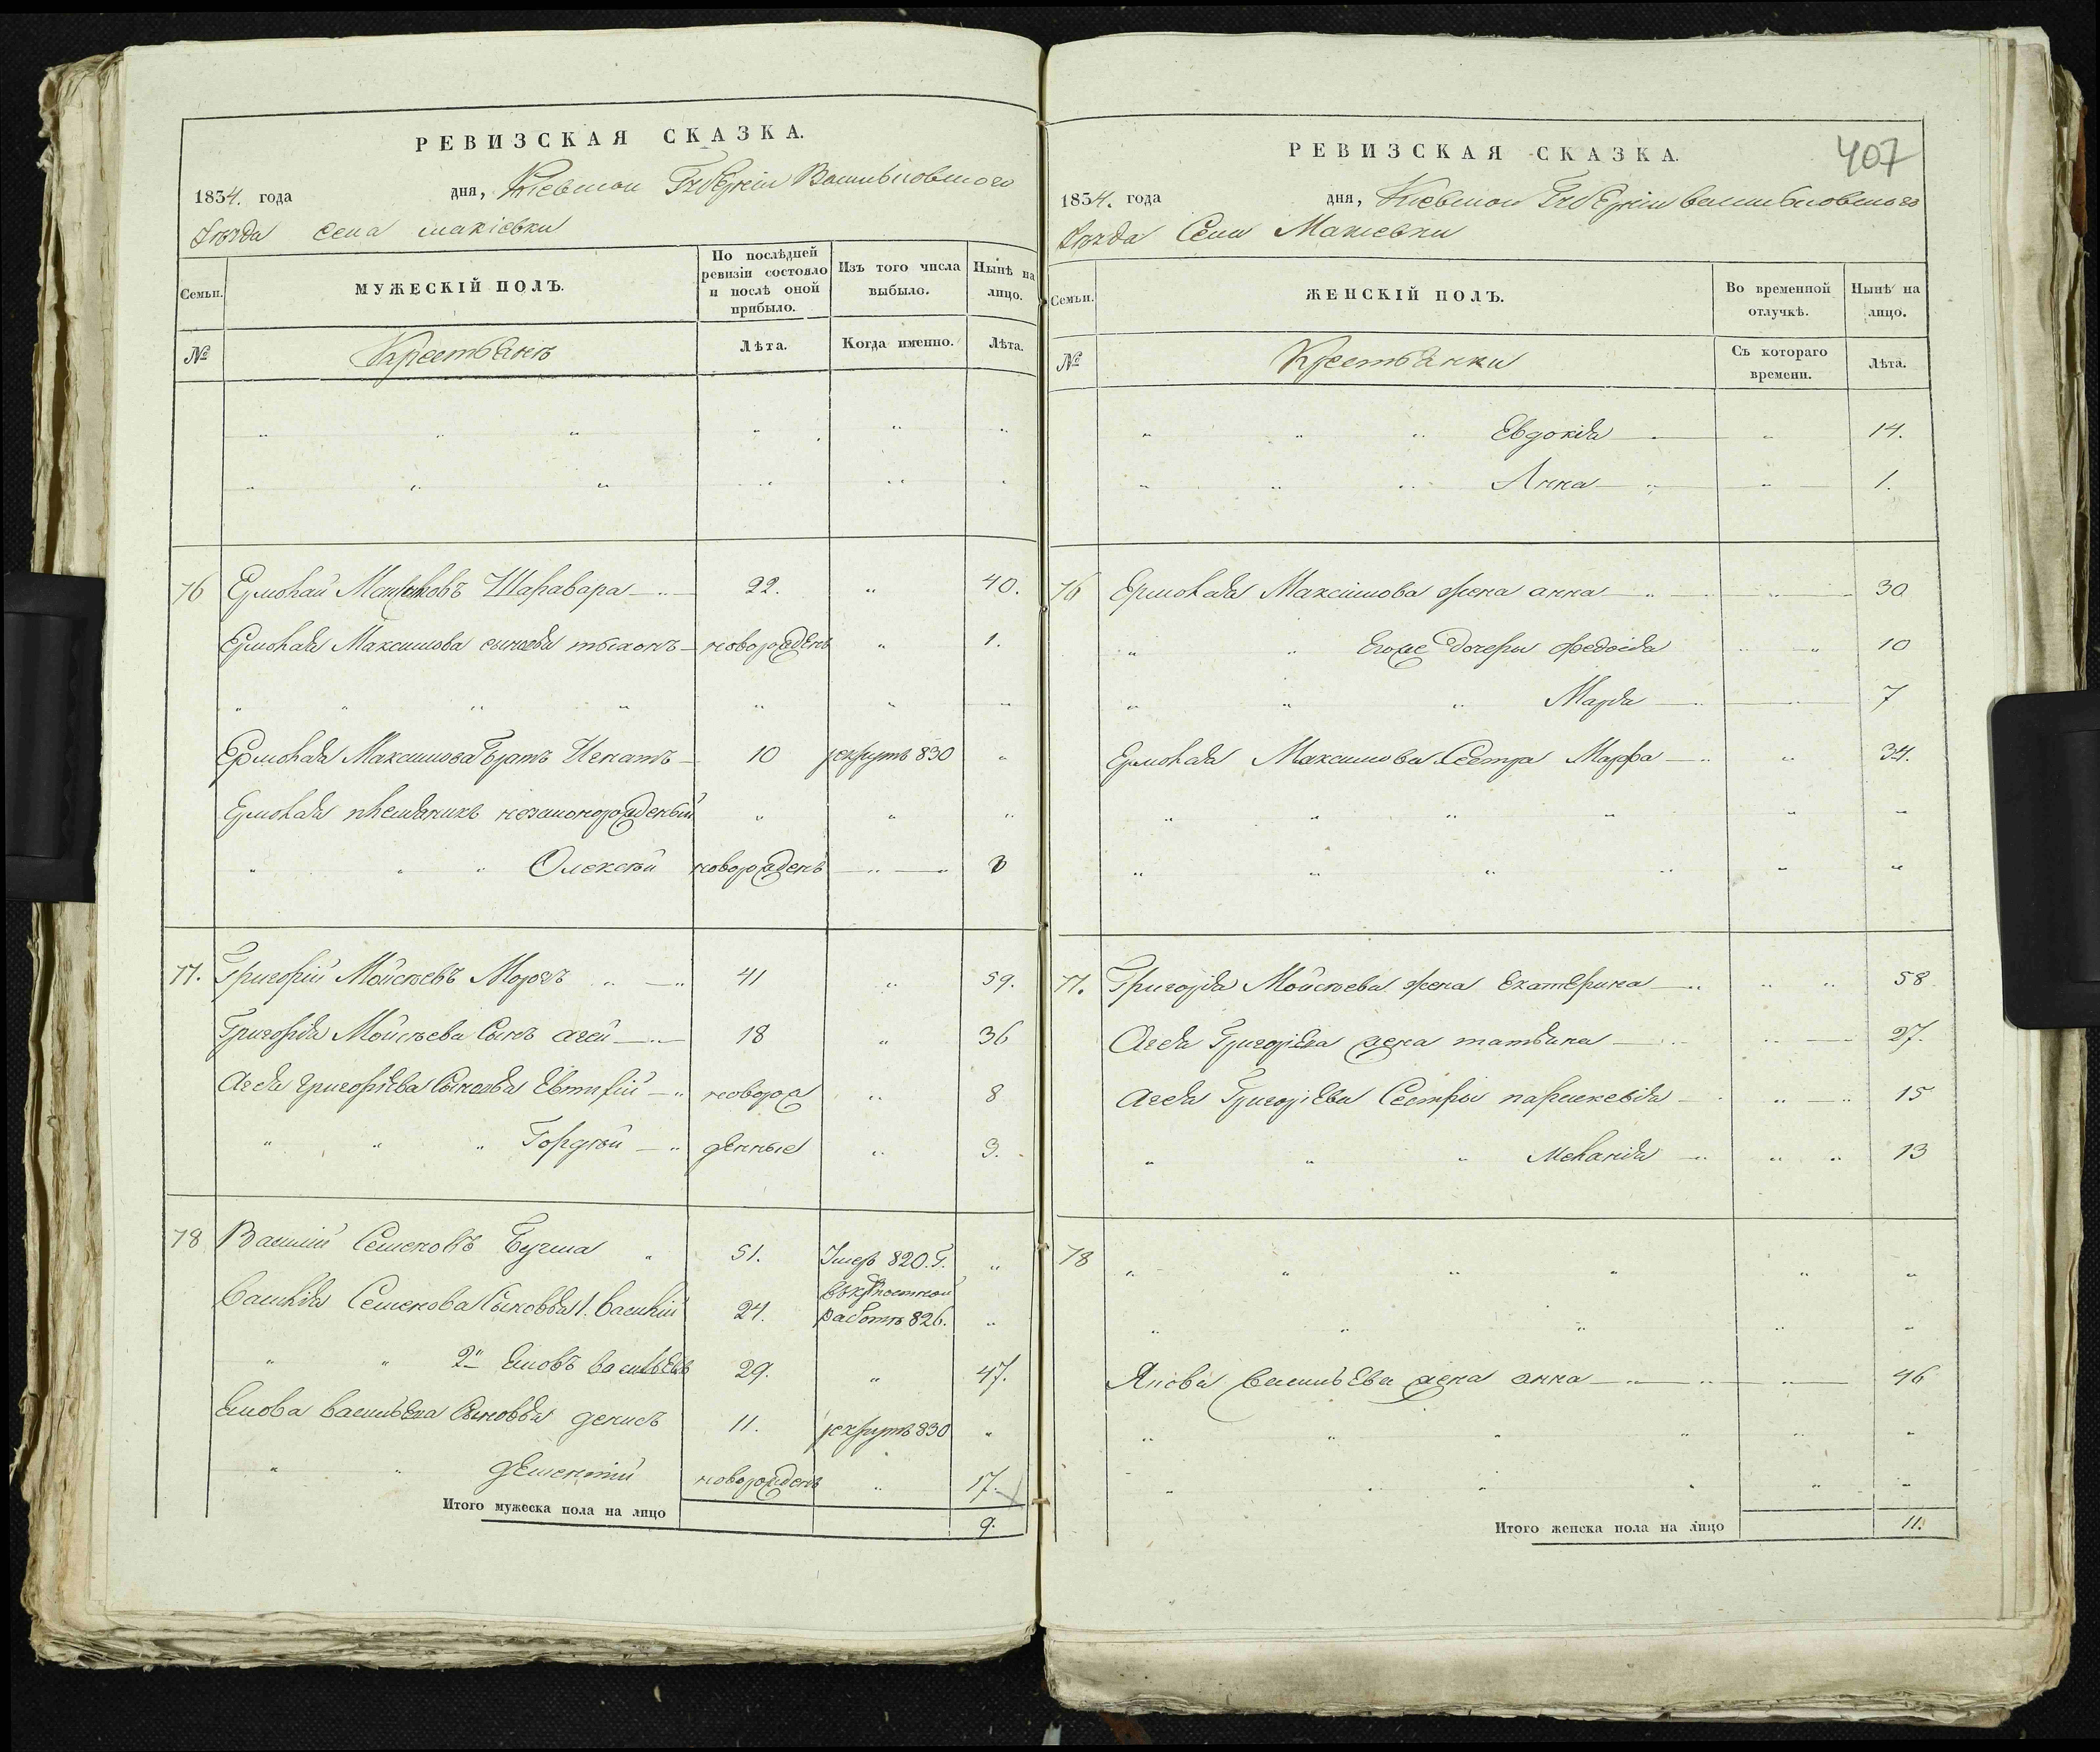 РЕВИЗСКАЯ СКАЗКА.
1834. года дня, Кіевской Губерніи Васильковского
Уезда села макіевки
Семьи. МУЖЕСКІЙ ПОЛЪ. По послѣдней ревизіи состояло и послѣ оной прибыло. Изъ того числа выбыло. Нынѣ на лицо.
№ Крестьянъ Лѣта. Когда именно. Лѣта.
76 Ермолай Максимовъ Шаравара 22. " 40.
Ермолая Максимова сыновья тыхонъ новорожденъ " 1.
Ермолая Максимова Братъ Игнатъ 10 рекрутъ 830 "
Ермолая племяникъ незаконорожденый " " "
Олексѣй новорожденъ "
77. Григорій Мойсѣевъ Морозъ 41 " 59.
Григорія Мойсѣева Сынъ агей 18 " 36
Агея григоріева Сыновья Евтифій новорож " 8
Гордѣй денные " 3.
78 Василий Семеновъ Бугша " 51. Умеръ 820. Г. "
Василія Семенова Сыновья 1. Василій 24. работѣ 826. "
2й Яковъ васильевъ 29. " 47.
Якова васильева Сыновья денисъ 11. рекрутъ 830 "
дементій новорожденъ " 17.
Итого мужеска пола на лицо 9.
407
РЕВИЗСКАЯ СКАЗКА.
1834. года дня, Кіевской Губерніи васильковского
Уезда Села Макіевки
Семьи. ЖЕНСКІЙ ПОЛЪ. Во временной отлучкѣ. Нынѣ на лицо.
№ Крестьянки Съ котораго времени. Лѣта.
" " " Евдокія " 14.
" " " Анна " 1.
76 Ермолая Максимова жена анна " 30
" " Егоже дочери федосія " 10
" " " Марія " 7
Ермолая Максимова Сестра Марфа " 34.
77. Григорія Мойсѣева жена Екатерина " " 58
Агея Григоріева жена татьяна " 27.
Агея Григоріева Сестры параскевія " 15
" " " Меланія " " 13
78 " " " " " "
Якова васильева жена анна " 46
Итого женска пола на лицо 11.